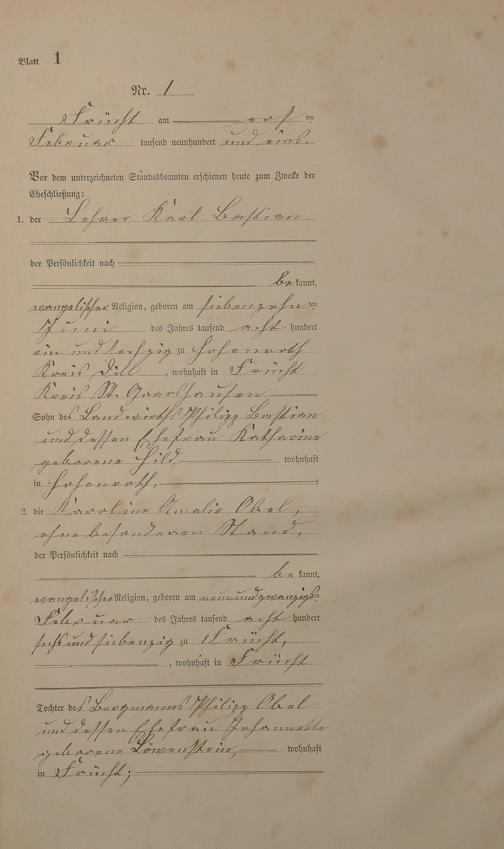 Blatt 1
Nr. 1
Frücht am ersten
Februar tausend neunhundert und eins.
Vor dem unterzeichneten Standesbeamten erschienen heute zum Zwecke der
Eheschließung:
1. der Lehrer Karl Bastian
der Persönlichkeit nach
bekannt,
evangelischer Religion, geboren am siebenzehnten
Juni des Jahres tausend acht hundert
ein und sechzig zu Hohenroth
Kreis Dill, wohnhaft in Frücht
Kreis St. Goarshausen
Sohn des Landwirths Philipp Bastian
und dessen Ehefrau Katharine
geborene Hild, wohnhaft
in Hohenroth,
2. die Karoline Amalie Obel,
ohne besonderen Stand,
der Persönlichkeit nach
bekannt,
evangelischer Religion, geboren am neunundzwanzigsten
Februar des Jahres tausend acht hundert
sechs und siebenzig zu Frücht,
, wohnhaft in Frücht
Tochter des Bergmanns Philipp Obel
und dessen Ehefrau Johannette
geborene Löwenstein, wohnhaft
in Frücht;